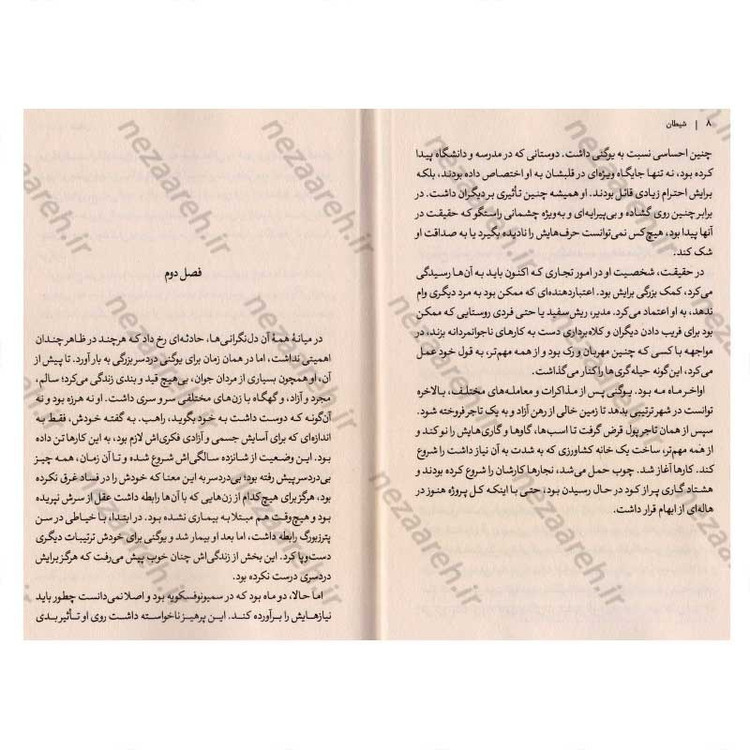 ۸ | شیطان
چنین احساسی نسبت به یوگنی داشت. دوستانی که در مدرسه و دانشگاه پیدا
کرده بود، نه تنها جایگاه ویژه‌ای در قلبشان به او اختصاص داده بودند، بلکه
برایش احترام زیادی قائل بودند. او همیشه چنین تأثیری بر دیگران داشت. در
برابر چنین روی گشاده و بی‌پیرایه‌ای و به‌ویژه چشمانی راستگو که حقیقت در
آنها پیدا بود، هیچ‌کس نمی‌توانست حرف‌هایش را نادیده بگیرد یا به صداقت او
شک کند.
در حقیقت، شخصیت او در امور تجاری که اکنون باید به آن‌ها رسیدگی
می‌کرد، کمک بزرگی برایش بود. اعتباردهنده‌ای که ممکن بود به مرد دیگری وام
ندهد، به او اعتماد می‌کرد. مدیر، ریش‌سفید یا حتی فردی روستایی که ممکن
بود برای فریب دادن دیگران و کلاه‌برداری دست به کارهای ناجوانمردانه بزند، در
مواجهه با کسی که چنین مهربان و رک بود و از همه مهم‌تر، به قول خود عمل
می‌کرد، این‌گونه حیله‌گری‌ها را کنار می‌گذاشت.
اواخر ماه مه بود. یوگنی پس از مذاکرات و معامله‌های مختلف، بالاخره
توانست در شهر ترتیبی بدهد تا زمین خالی از رهن آزاد و به یک تاجر فروخته شود.
سپس از همان تاجر پول قرض گرفت تا اسب‌ها، گاوها و گاری‌هایش را نو کند و
از همه مهم‌تر، ساخت یک خانه کشاورزی که به شدت به آن نیاز داشت را شروع
کند. کارها آغاز شد. چوب حمل می‌شد، نجارها کارشان را شروع کرده بودند و
هشتاد گاری پر از کود در حال رسیدن بود، حتی با اینکه کل پروژه هنوز در
هاله‌ای از ابهام قرار داشت.
فصل دوم
در میانهٔ همهٔ آن دل‌نگرانی‌ها، حادثه‌ای رخ داد که هرچند در ظاهر چندان
اهمیتی نداشت، اما در همان زمان برای یوگنی دردسر بزرگی به بار آورد. تا پیش از
آن، او همچون بسیاری از مردان جوان، بی‌هیچ قید و بندی زندگی می‌کرد؛ سالم،
مجرد و آزاد، و گهگاه با زن‌های مختلفی سر و سری داشت. او نه هرزه بود و نه
آن‌گونه که دوست داشت به خود بگوید، راهب. به گفته خودش، فقط به
اندازه‌ای که برای آسایش جسمی و آزادی فکری‌اش لازم بود، به این کارها تن داده
بود. این وضعیت از شانزده سالگی‌اش شروع شده و تا آن زمان، همه چیز
بی‌دردسر پیش رفته بود؛ بی‌دردسر به این معنا که خودش را در فساد غرق نکرده
بود، هرگز برای هیچ‌کدام از زن‌هایی که با آن‌ها رابطه داشت عقل از سرش نپریده
بود و هیچ‌وقت هم مبتلا به بیماری نشده بود. در ابتدا، با خیاطی در سن
پترزبورگ رابطه داشت، اما بعد او بیمار شد و یوگنی برای خودش ترتیبات دیگری
دست‌وپا کرد. این بخش از زندگی‌اش چنان خوب پیش می‌رفت که هرگز برایش
دردسری درست نکرده بود.
اما حالا، دو ماه بود که در سمیونوفسکویه بود و اصلا نمی‌دانست چطور باید
نیازهایش را برآورده کند. این پرهیز ناخواسته داشت روی او تأثیر بدی
nezaareh.ir
nezaareh.ir
nezaareh.ir
nezaareh.ir
nezaareh.ir
nezaareh.ir
nezaareh.ir
nezaareh.ir
nezaareh.ir
nezaareh.ir